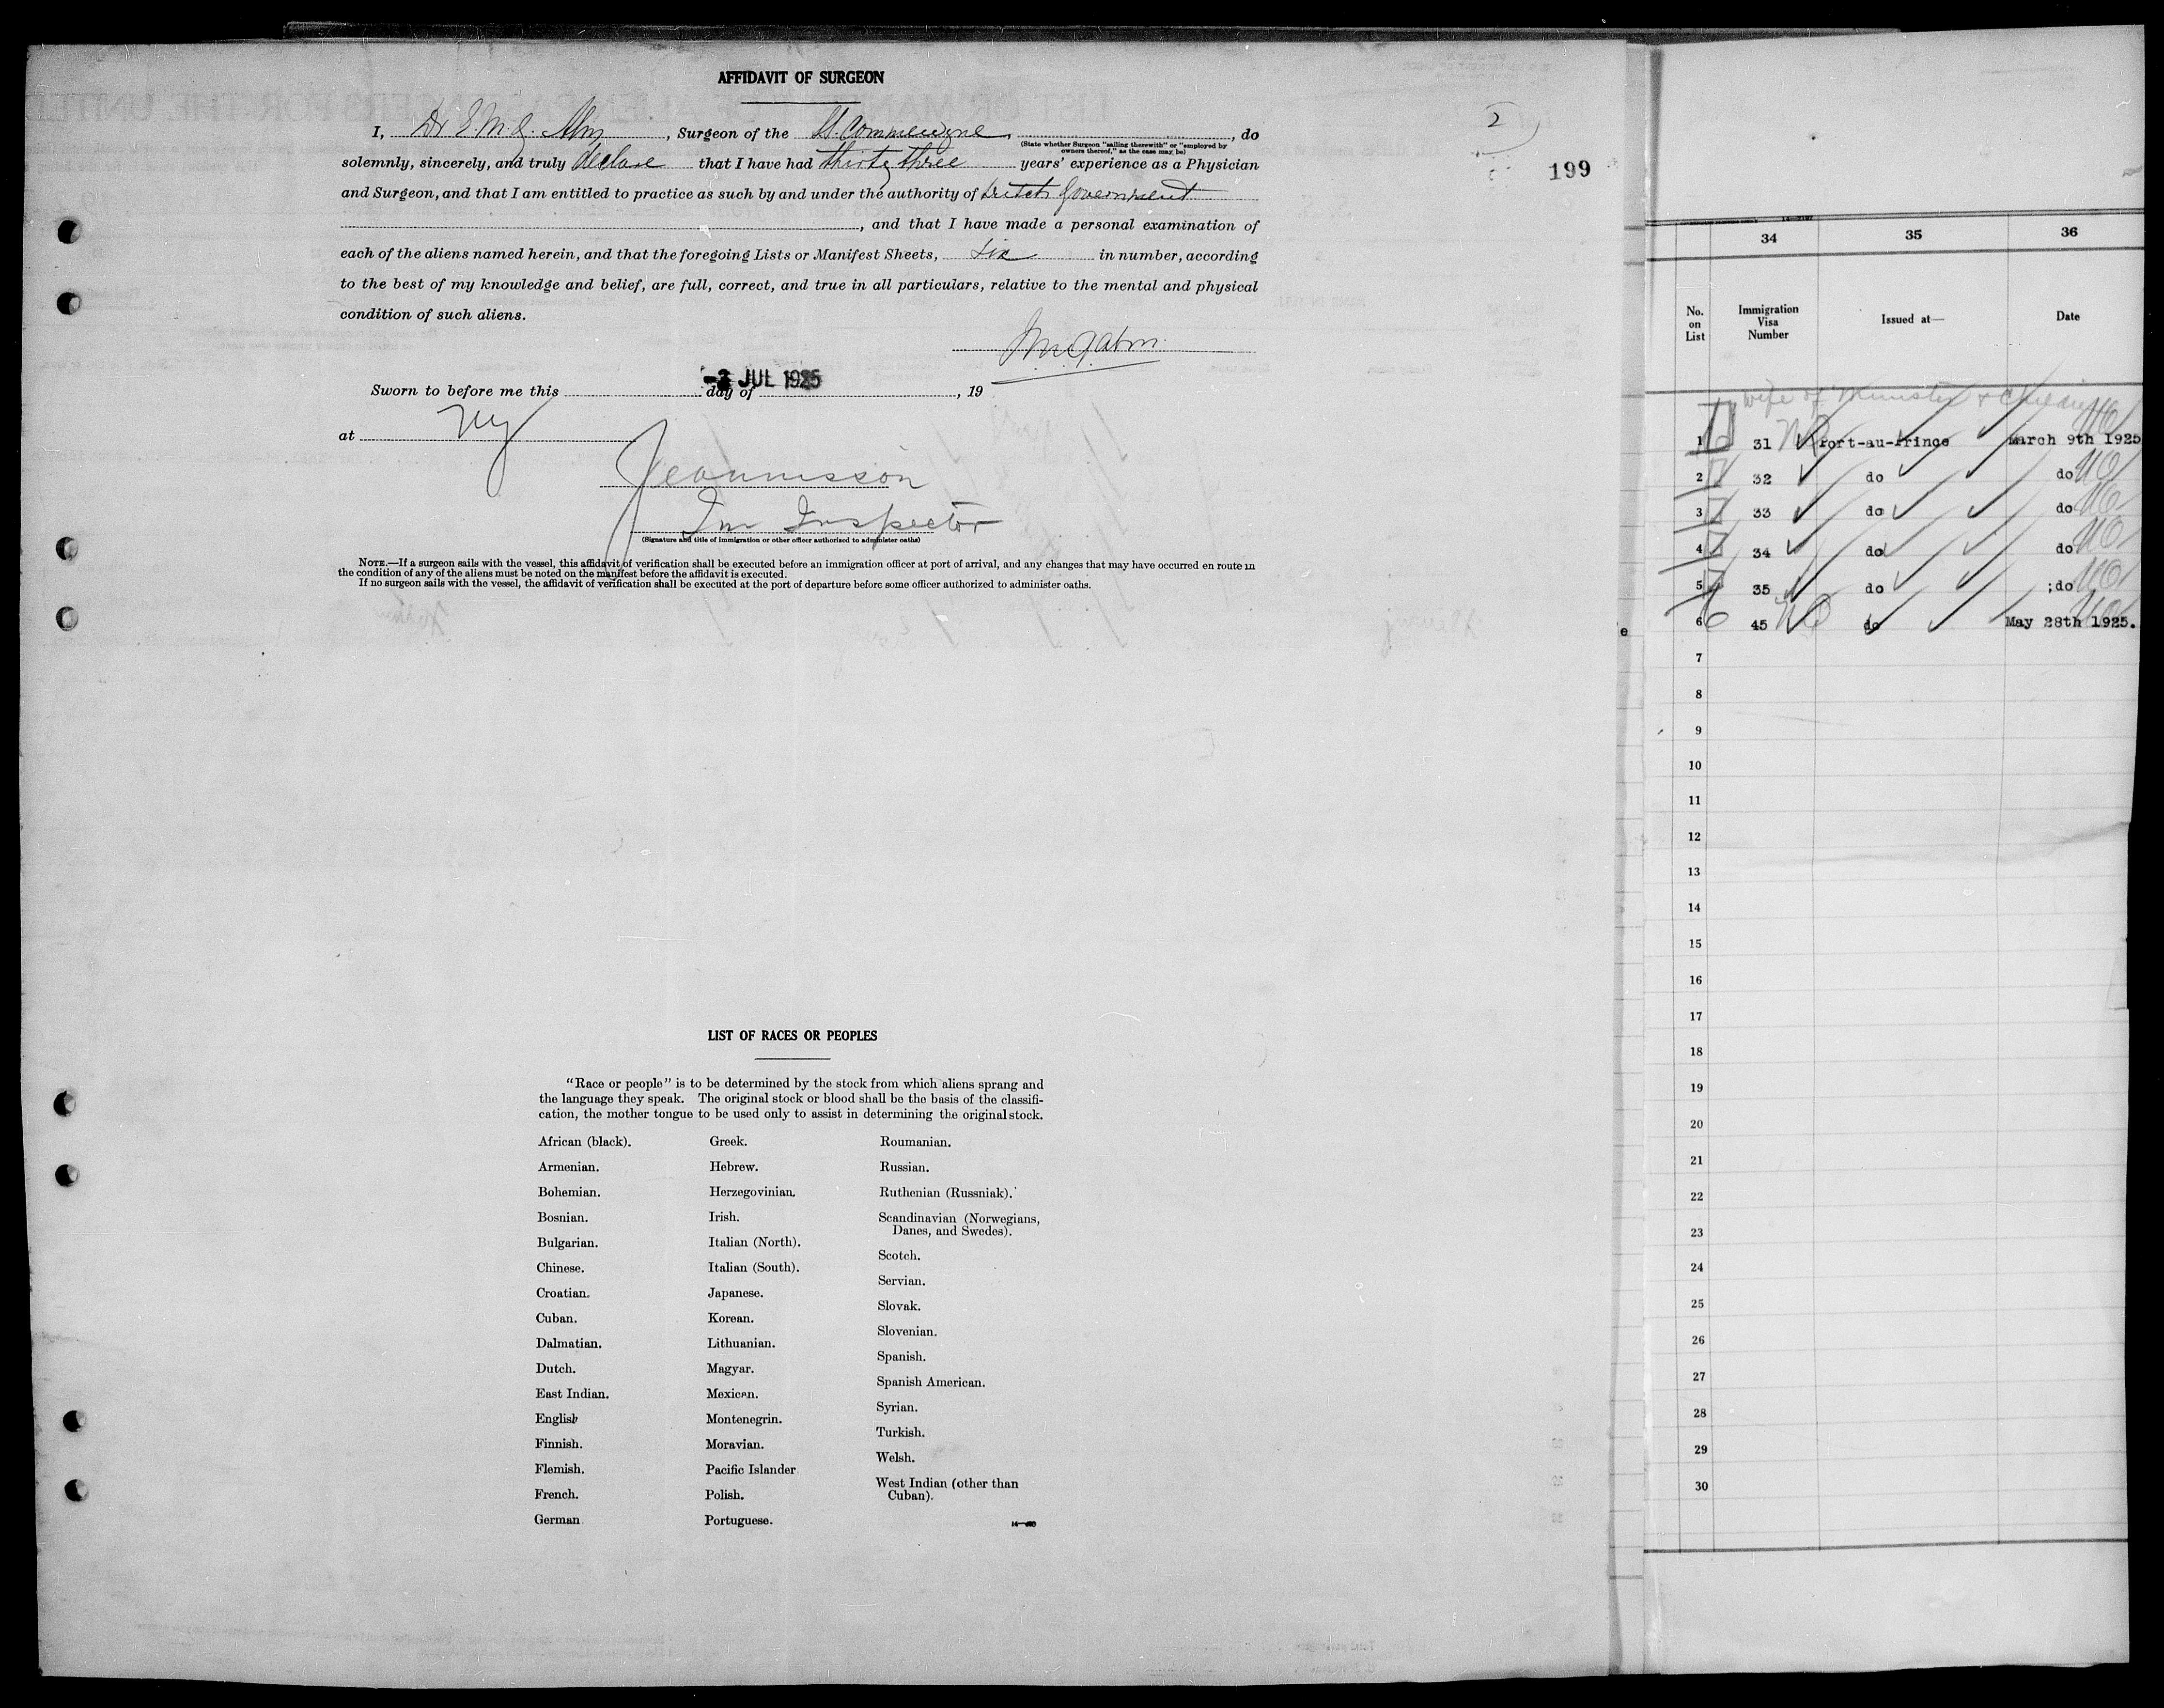 AFFIDAVIT OF SURGEON
I, Dr E. M. G. , Surgeon of the SS. Commewyne, , do
(State whether Surgeon "sailing therewith" or "employed by
owners thereof," as the case may be)
solemnly, sincerely, and truly declare that I have had thirty three years' experience as a Physician
and Surgeon, and that I am entitled to practice as such by and under the authority of Dutch Government
, and that I have made a personal examination of
each of the aliens named herein, and that the foregoing Lists or Manifest Sheets, six in number, according
to the best of my knowledge and belief, are full, correct, and true in all particulars, relative to the mental and physical
condition of such aliens.
Sworn to before me this day of , 19
JUL 1925
at NY
Im Inspector
(Signature and title of immigration or other officer authorized to administer oaths)
NOTE.—If a surgeon sails with the vessel, this affidavit of verification shall be executed before an immigration officer at port of arrival, and any changes that may have occurred en route in
the condition of any of the aliens must be noted on the manifest before the affidavit is executed.
If no surgeon sails with the vessel, the affidavit of verification shall be executed at the port of departure before some officer authorized to administer oaths.
2
199
LIST OF RACES OR PEOPLES
"Race or people" is to be determined by the stock from which aliens sprang and
the language they speak. The original stock or blood shall be the basis of the classifi-
cation, the mother tongue to be used only to assist in determining the original stock.
African (black).
Armenian.
Bohemian.
Bosnian.
Bulgarian.
Chinese.
Croatian.
Cuban.
Dalmatian.
Dutch.
East Indian.
English
Finnish.
Flemish.
French.
German
Greek.
Hebrew.
Herzegovinian.
Irish.
Italian (North).
Italian (South).
Japanese.
Korean.
Lithuanian.
Magyar.
Mexican.
Montenegrin.
Moravian.
Pacific Islander
Polish.
Portuguese.
Roumanian.
Russian.
Ruthenian (Russniak).
Scandinavian (Norwegians,
Danes, and Swedes).
Scotch.
Servian.
Slovak.
Slovenian.
Spanish.
Spanish American.
Syrian.
Turkish.
Welsh.
West Indian (other than
Cuban).
34 35 36
No. on List Immigration Visa Number Issued at— Date
wife of Minister & Children
1 31 Port-au-Prince March 9th 1925
2 32 do do
3 33 do do
4 34 do do
5 35 do ;do
6 45 do May 28th 1925.
7
8
9
10
11
12
13
14
15
16
17
18
19
20
21
22
23
24
25
26
27
28
29
30